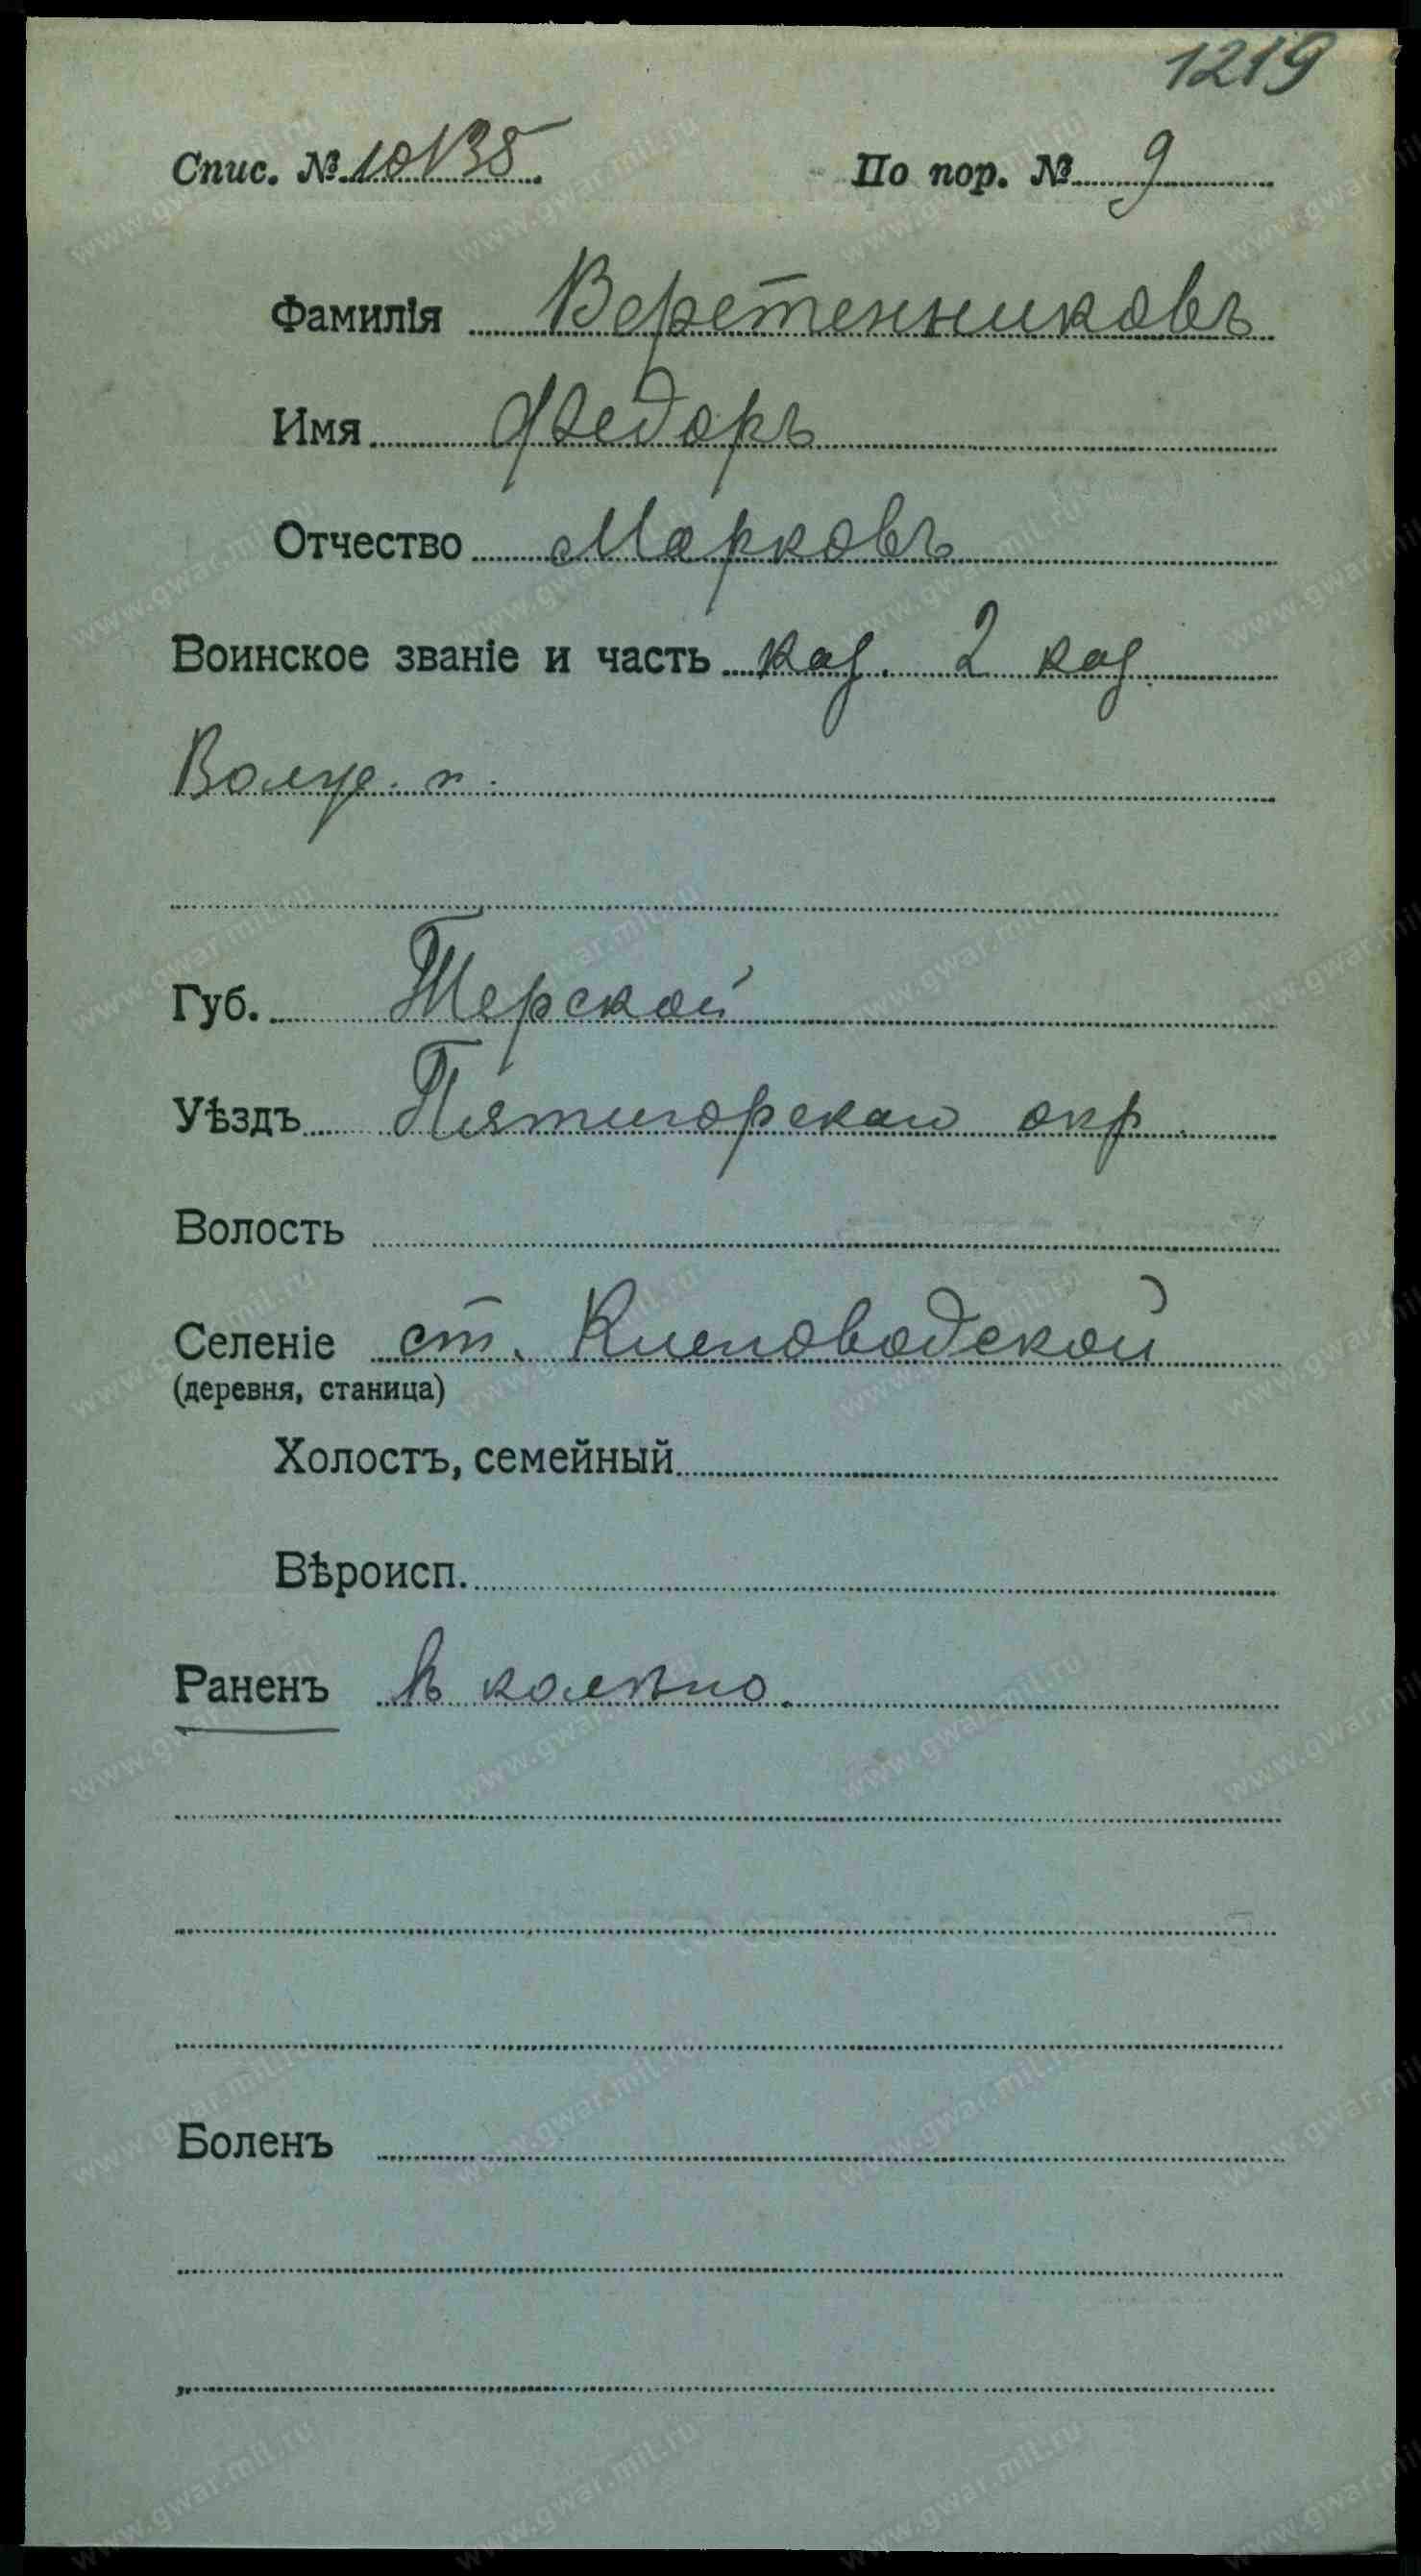 1219
Спис. № 10135 По пор. № 9
Фамилія Веретенниковъ
Имя Федоръ
Отчество Марковъ
Воинское званіе и часть каз. 2 каз.
Волг. п.
Губ. Терской
Уѣздъ Пятигорскаго окр.
Волость
Селеніе ст. Кисловодской
(деревня, станица)
Холостъ, семейный
Вѣроисп.
Раненъ в колѣно.
Боленъ
www.gwar.mil.ru